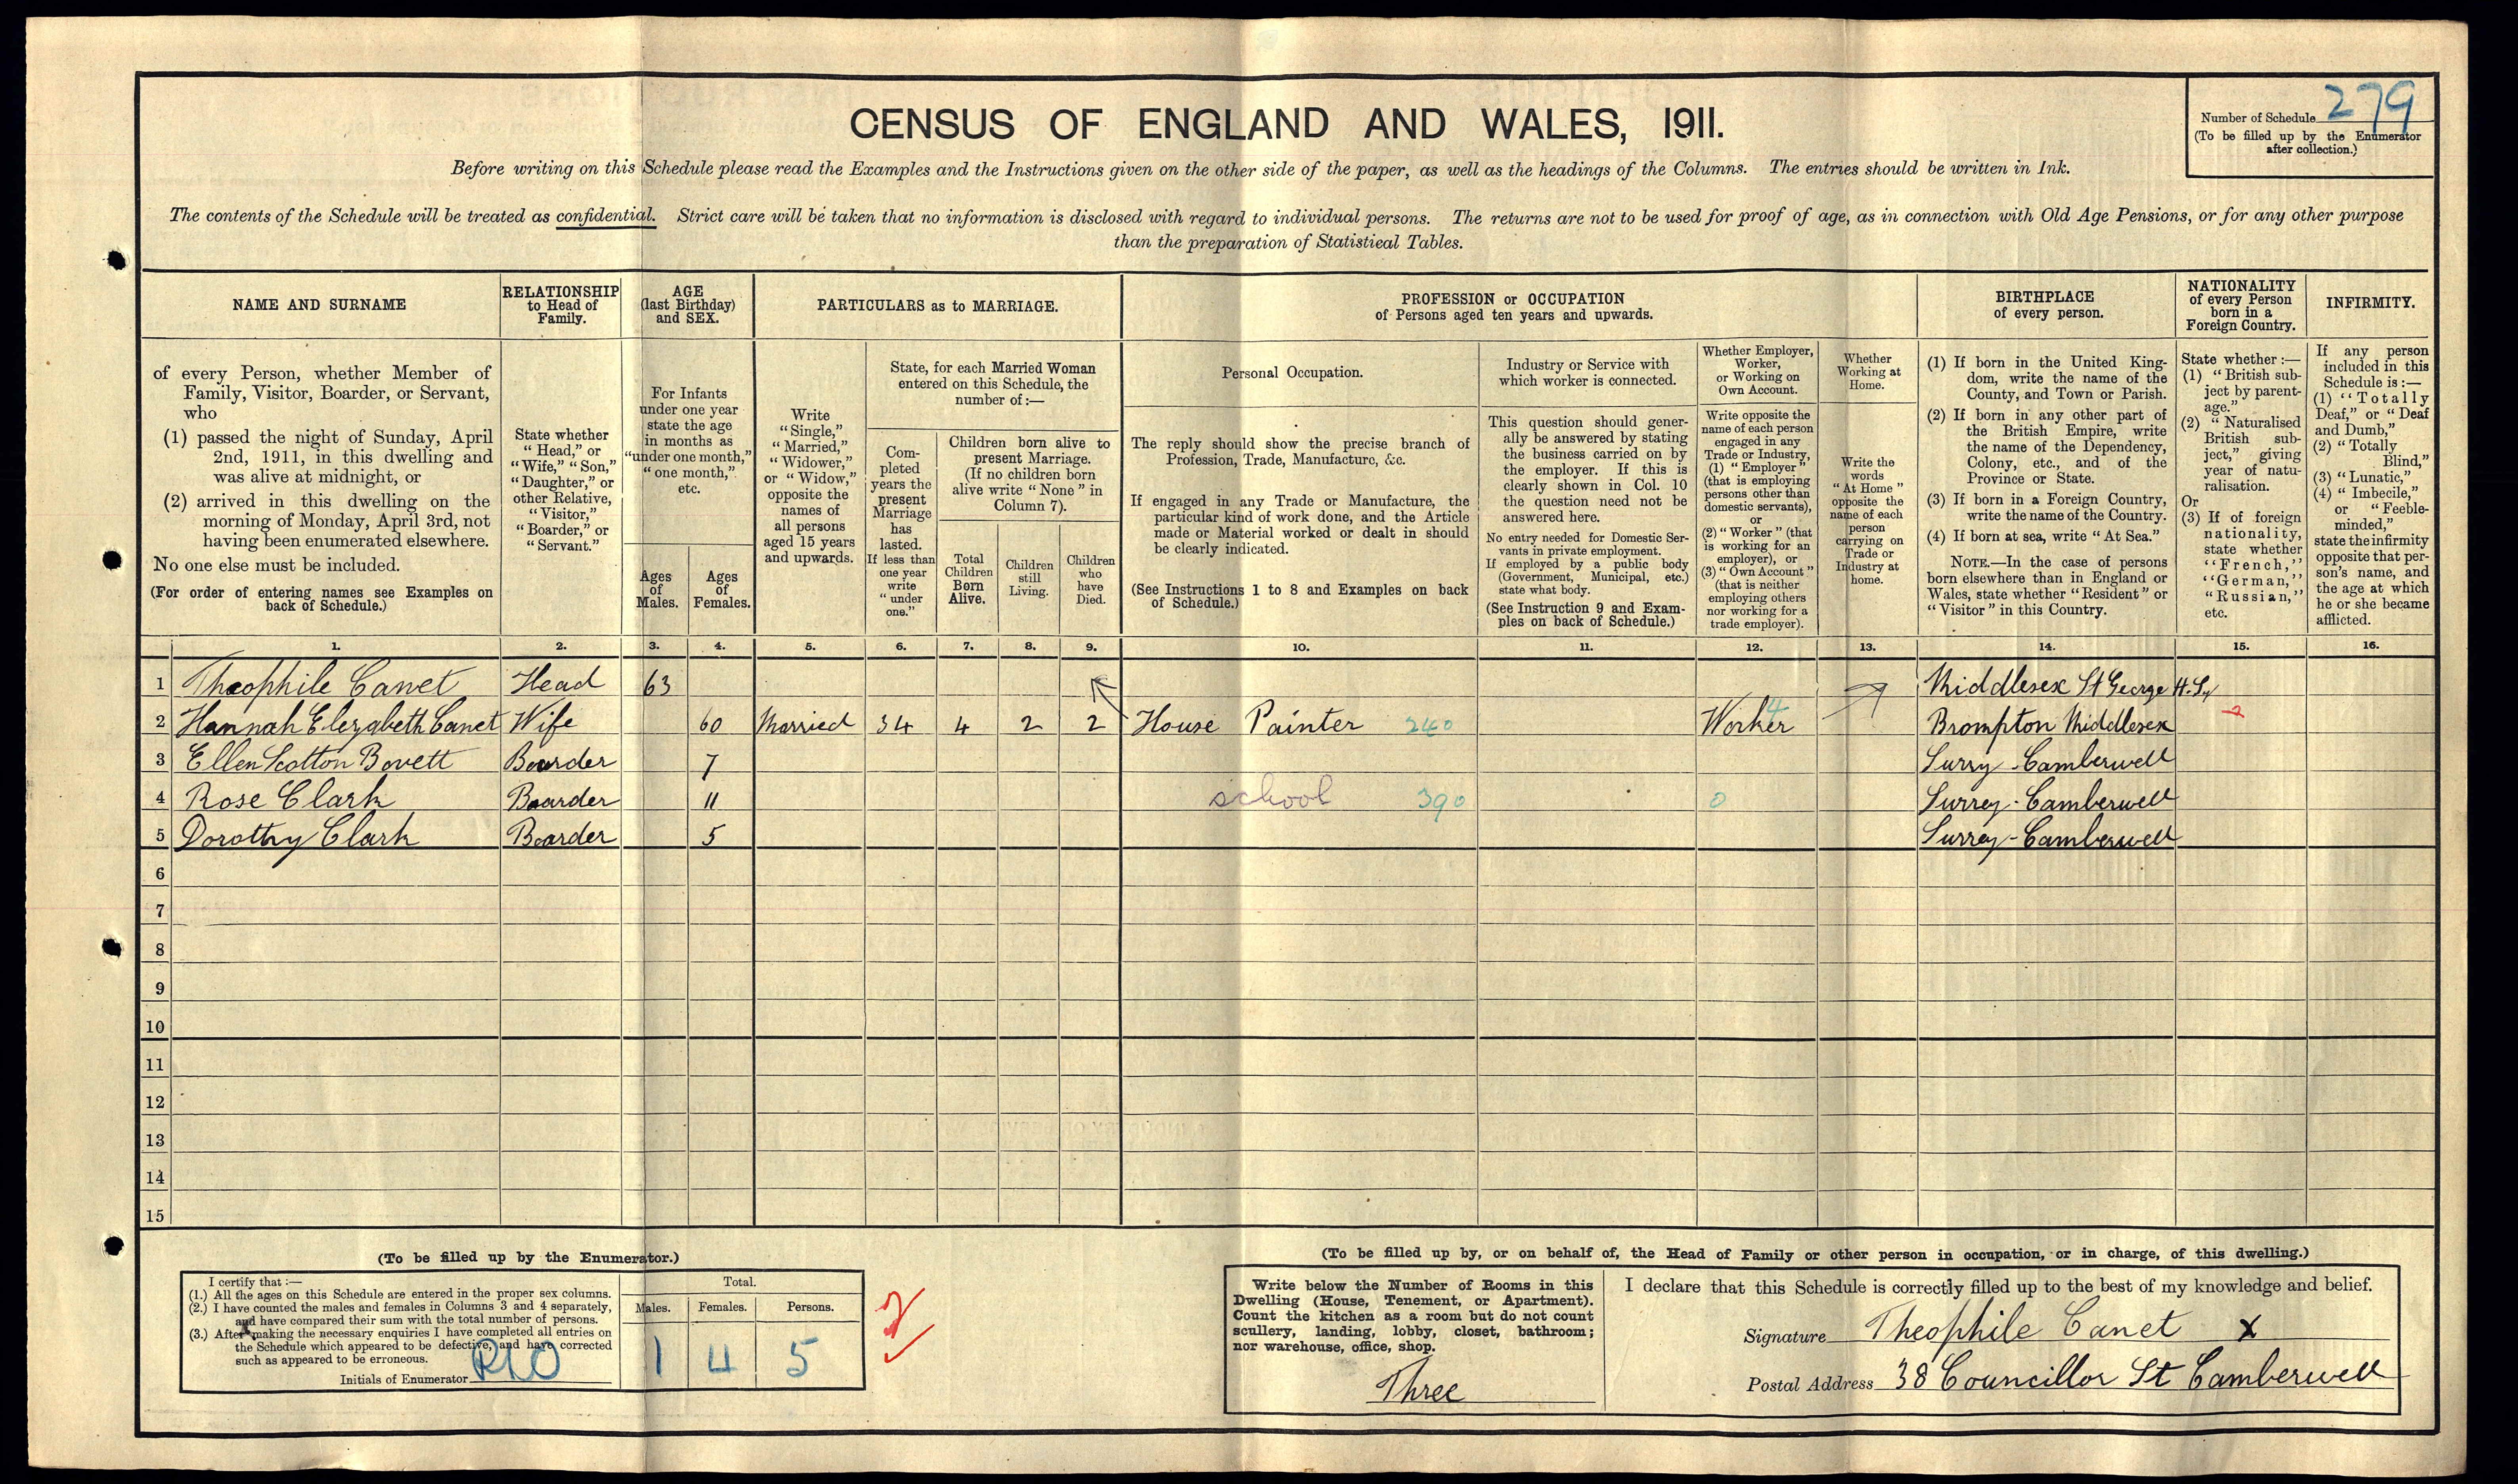 CENSUS OF ENGLAND AND WALES, 1911.
Number of Schedule 279
(To be filled up by the Enumerator
after collection.)
Before writing on this Schedule please read the Examples and the Instructions given on the other side of the paper, as well as the headings of the Columns. The entries should be written in Ink.
The contents of the Schedule will be treated as confidential. Strict care will be taken that no information is disclosed with regard to individual persons. The returns are not to be used for proof of age, as in connection with Old Age Pensions, or for any other purpose
than the preparation of Statistical Tables.
NAME AND SURNAME
of every Person, whether Member of
Family, Visitor, Boarder, or Servant,
who
(1) passed the night of Sunday, April
2nd, 1911, in this dwelling and
was alive at midnight, or
(2) arrived in this dwelling on the
morning of Monday, April 3rd, not
having been enumerated elsewhere.
No one else must be included.
(For order of entering names see Examples on
back of Schedule.)
RELATIONSHIP
to Head of
Family.
State whether
"Head," or
"Wife," "Son,"
"Daughter," or
other Relative,
"Visitor,"
"Boarder," or
"Servant."
AGE
(last Birthday)
and SEX.
For Infants
under one year
state the age
in months as
"under one month,"
"one month,"
etc.
Ages
of
Males.
Ages
of
Females.
PARTICULARS as to MARRIAGE.
Write
"Single,"
"Married,"
"Widower,"
or "Widow,"
opposite the
names of
all persons
aged 15 years
and upwards.
State, for each Married Woman
entered on this Schedule, the
number of :—
Com-
pleted
years the
present
Marriage
has
lasted.
If less than
one year
write
"under
one."
Children born alive to
present Marriage.
(If no children born
alive write "None" in
Column 7).
Total
Children
Born
Alive.
Children
still
Living.
Children
who
have
Died.
PROFESSION or OCCUPATION
of Persons aged ten years and upwards.
Personal Occupation.
The reply should show the precise branch of
Profession, Trade, Manufacture, &c.
If engaged in any Trade or Manufacture, the
particular kind of work done, and the Article
made or Material worked or dealt in should
be clearly indicated.
(See Instructions 1 to 8 and Examples on back
of Schedule.)
Industry or Service with
which worker is connected.
This question should gener-
ally be answered by stating
the business carried on by
the employer. If this is
clearly shown in Col. 10
the question need not be
answered here.
No entry needed for Domestic Ser-
vants in private employment.
If employed by a public body
(Government, Municipal, etc.)
state what body.
(See Instruction 9 and Exam-
ples on back of Schedule.)
Whether Employer,
Worker,
or Working on
Own Account.
Write opposite the
name of each person
engaged in any
Trade or Industry,
(1) "Employer"
(that is employing
persons other than
domestic servants),
or
(2) "Worker" (that
is working for an
employer), or
(3) "Own Account"
(that is neither
employing others
nor working for a
trade employer).
Whether
Working at
Home.
Write the
words
"At Home"
opposite the
name of each
person
carrying on
Trade or
Industry at
home.
BIRTHPLACE
of every person.
(1) If born in the United King-
dom, write the name of the
County, and Town or Parish.
(2) If born in any other part of
the British Empire, write
the name of the Dependency,
Colony, etc., and of the
Province or State.
(3) If born in a Foreign Country,
write the name of the Country.
(4) If born at sea, write "At Sea."
NOTE.—In the case of persons
born elsewhere than in England or
Wales, state whether "Resident" or
"Visitor" in this Country.
NATIONALITY
of every Person
born in a
Foreign Country.
State whether :—
(1) "British sub-
ject by parent-
age."
(2) "Naturalised
British sub-
ject," giving
year of natu-
ralisation.
Or
(3) If of foreign
nationality,
state whether
"French,"
"German,"
"Russian,"
etc.
INFIRMITY.
If any person
included in this
Schedule is :—
(1) "Totally
Deaf," or "Deaf
and Dumb,"
(2) "Totally
Blind,"
(3) "Lunatic,"
(4) "Imbecile,"
or "Feeble-
minded,"
state the infirmity
opposite that per-
son's name, and
the age at which
he or she became
afflicted.
1. 2. 3. 4. 5. 6. 7. 8. 9. 10. 11. 12. 13. 14. 15. 16.
1 Theophile Canet Head 63 Middlesex St George H.Sq
2 Hannah Elezabeth Canet Wife 60 Married 34 4 2 2 House Painter 240 Worker 4 Brompton Middlesex
3 Ellen Scotton Bovett Boarder 7 Surry - Camberwell
4 Rose Clark Boarder 11 school 390 0 Surrey - Camberwell
5 Dorothy Clark Boarder 5 Surrey - Camberwell
6
7
8
9
10
11
12
13
14
15
(To be filled up by the Enumerator.)
I certify that :—
(1.) All the ages on this Schedule are entered in the proper sex columns.
(2.) I have counted the males and females in Columns 3 and 4 separately,
and have compared their sum with the total number of persons.
(3.) After making the necessary enquiries I have completed all entries on
the Schedule which appeared to be defective, and have corrected
such as appeared to be erroneous.
Initials of Enumerator
Total.
Males. Females. Persons.
1 4 5
(To be filled up by, or on behalf of, the Head of Family or other person in occupation, or in charge, of this dwelling.)
Write below the Number of Rooms in this
Dwelling (House, Tenement, or Apartment).
Count the kitchen as a room but do not count
scullery, landing, lobby, closet, bathroom;
nor warehouse, office, shop.
Three
I declare that this Schedule is correctly filled up to the best of my knowledge and belief.
Signature Theophile Canet X
Postal Address 38 Councillor St Camberwell